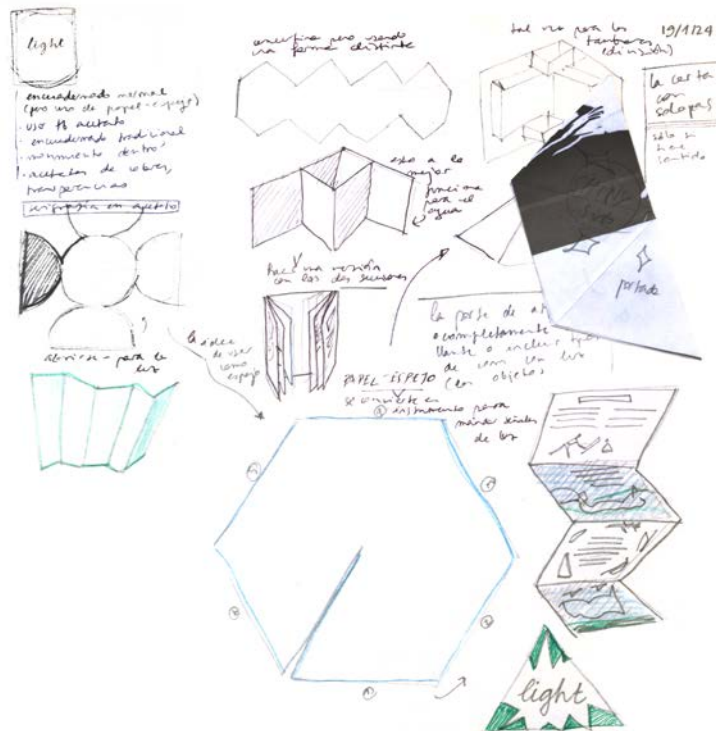 light
encuadernado normal
(por uso de papel-espejo)
· uso acetato
· encuadernado tradicional
· movimiento dentro
· acetatos de colores,
transparencias
serigrafía en acetato
abrirse - para la
luz
la idea
de usar
como
espejo
pero usando
una forma distinta
esto a lo
mejor
funciona
para el
agua
hacer una versión
con las dos
PAPEL-ESPEJO
se convierte en
instrumento para
mandar señales
de luz
tal vez para los
(división)
19/1/24
la carta
con
solapas
sólo si
tiene
sentido
portada
la parte de
completamente
o incluir
de com con luz
(los objetos)
light